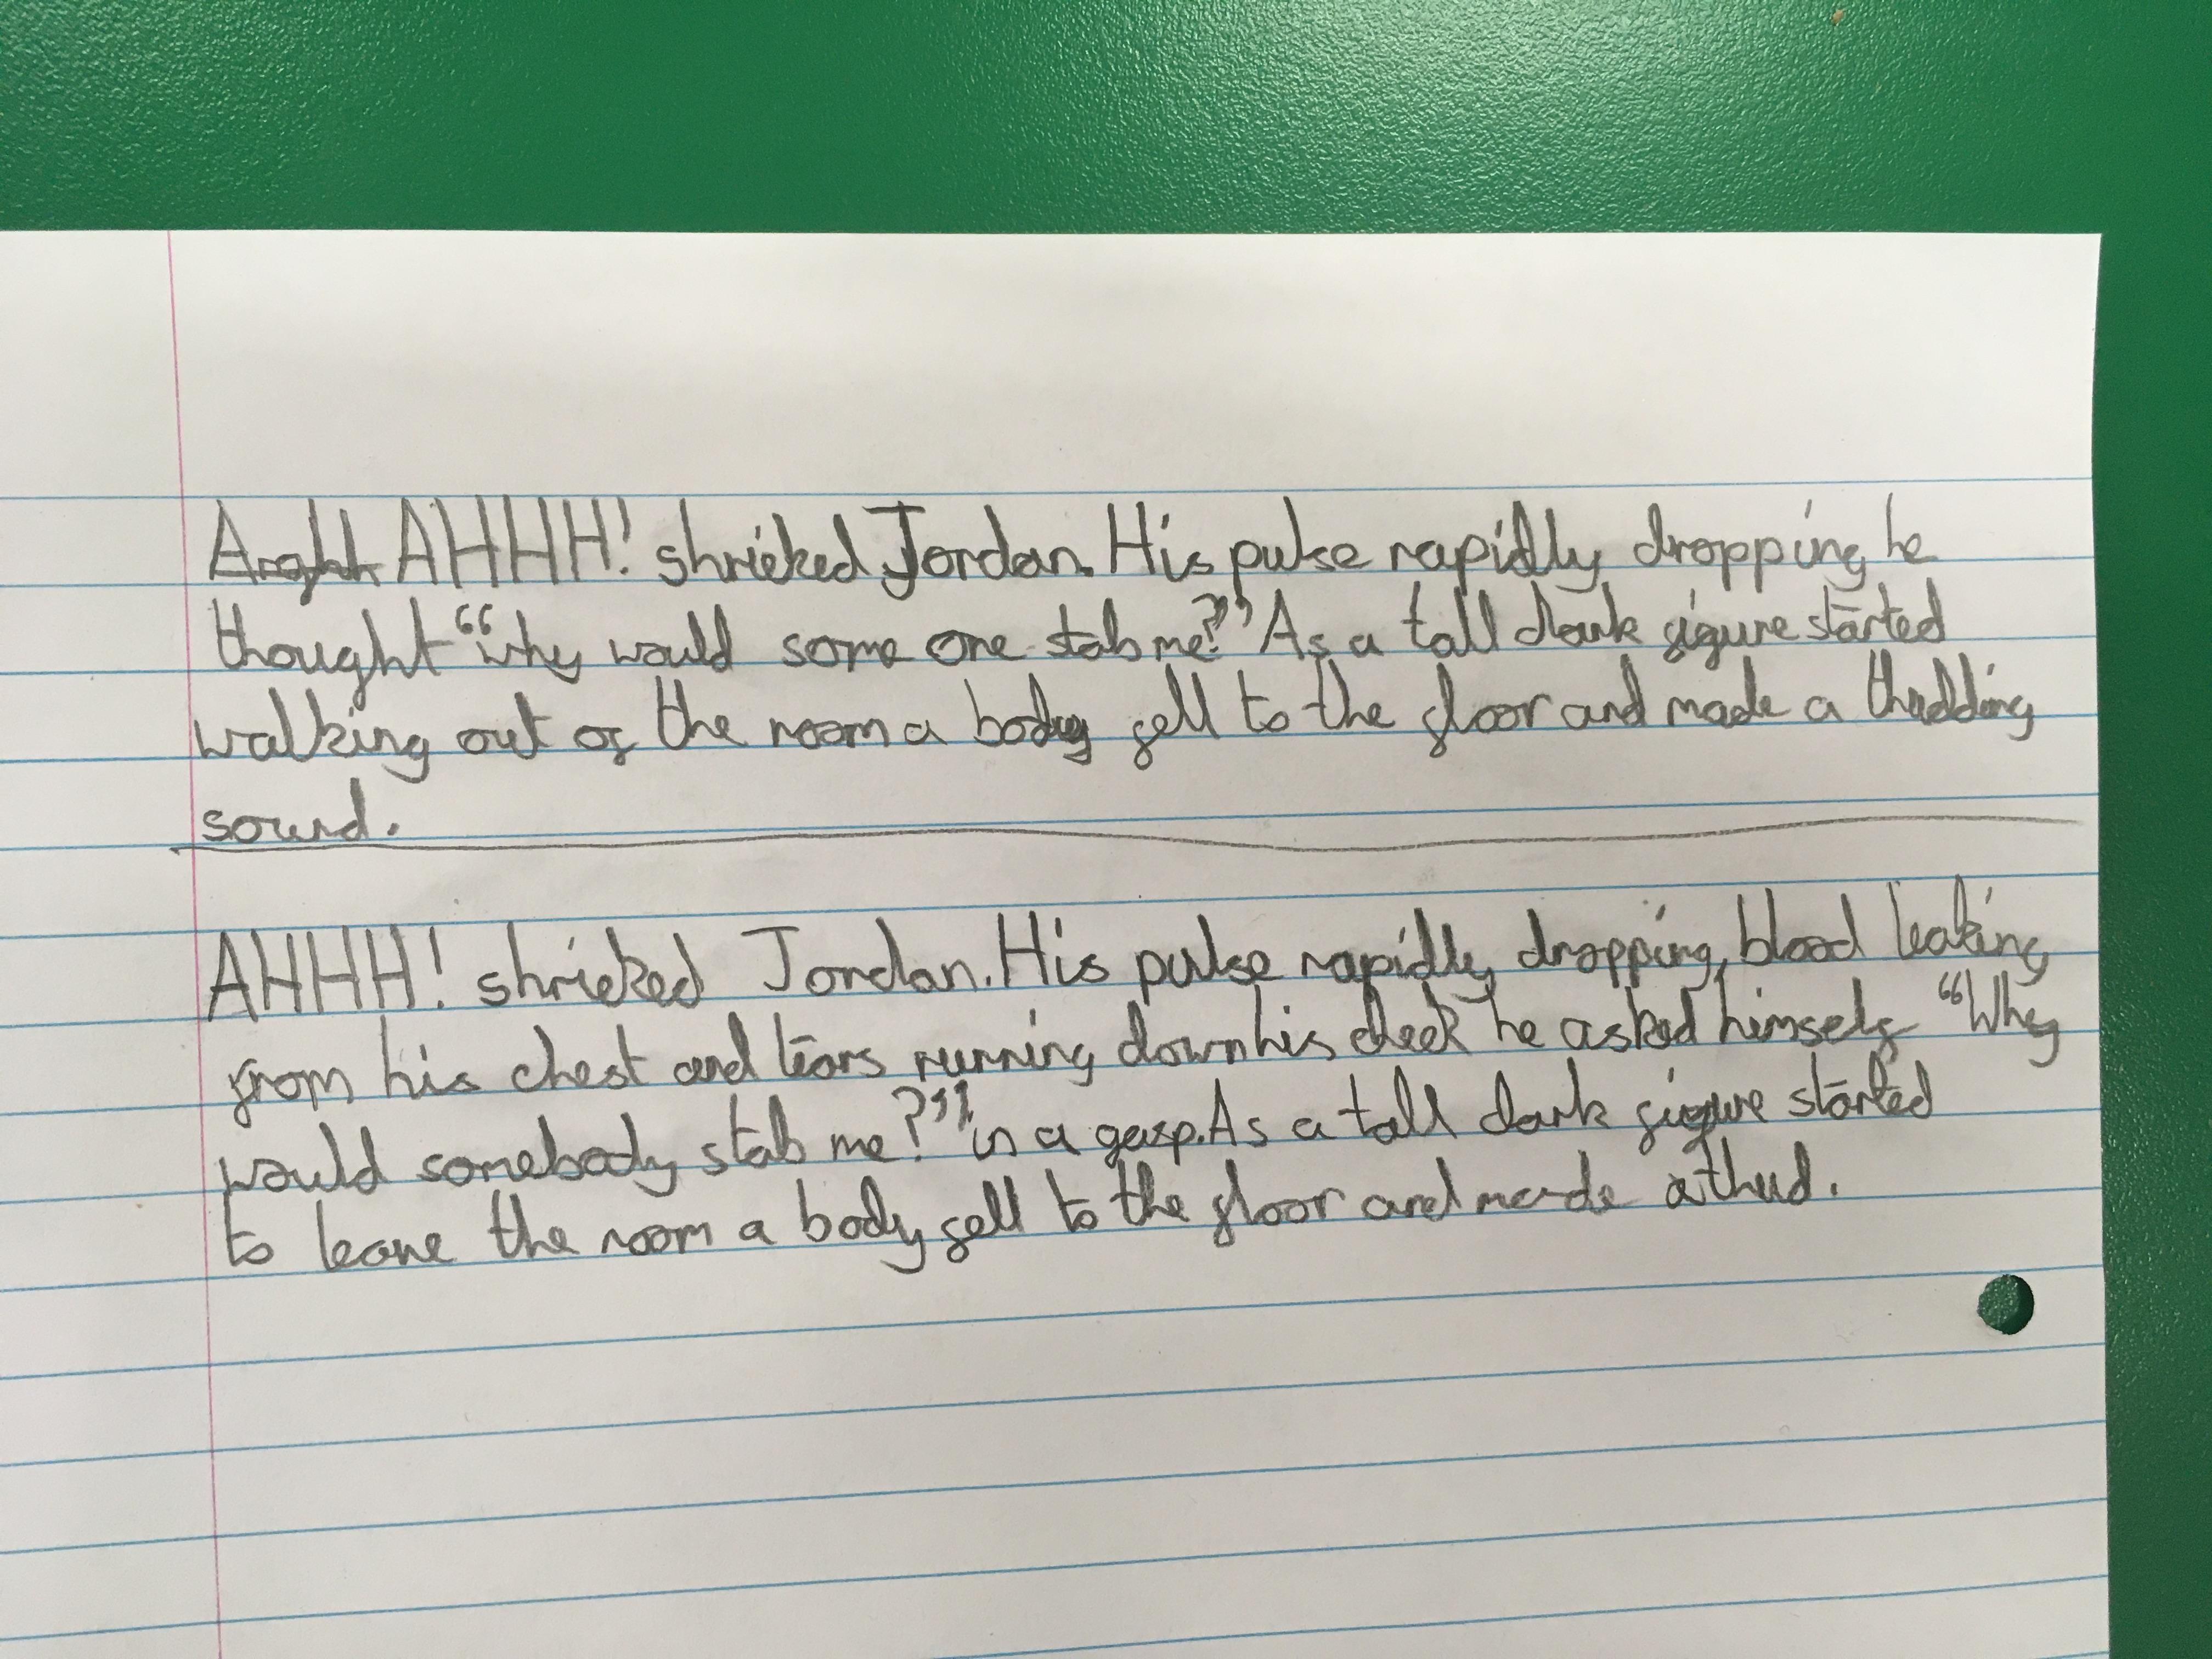 Arghh AHHH! shrieked Jordan. His pulse rapidly dropping he
thought “why would some one stab me?” As a tall dark figure started
walking out of the room a body fell to the floor and made a thudding
sound.
AHHH! shrieked Jordan. His pulse rapidly dropping, blood leaking
from his chest and tears running down his cheek he asked himself “Why
would somebody stab me?” in a gasp. As a tall dark figure started
to leave the room a body fell to the floor and made a thud.